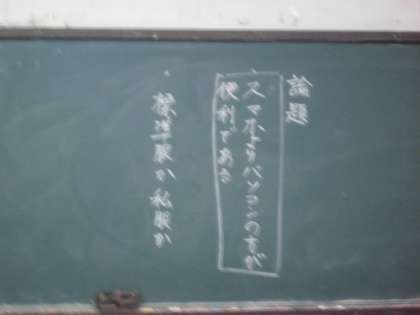 論題
・スマホよりパソコンの方が
便利である
・標準服か私服か